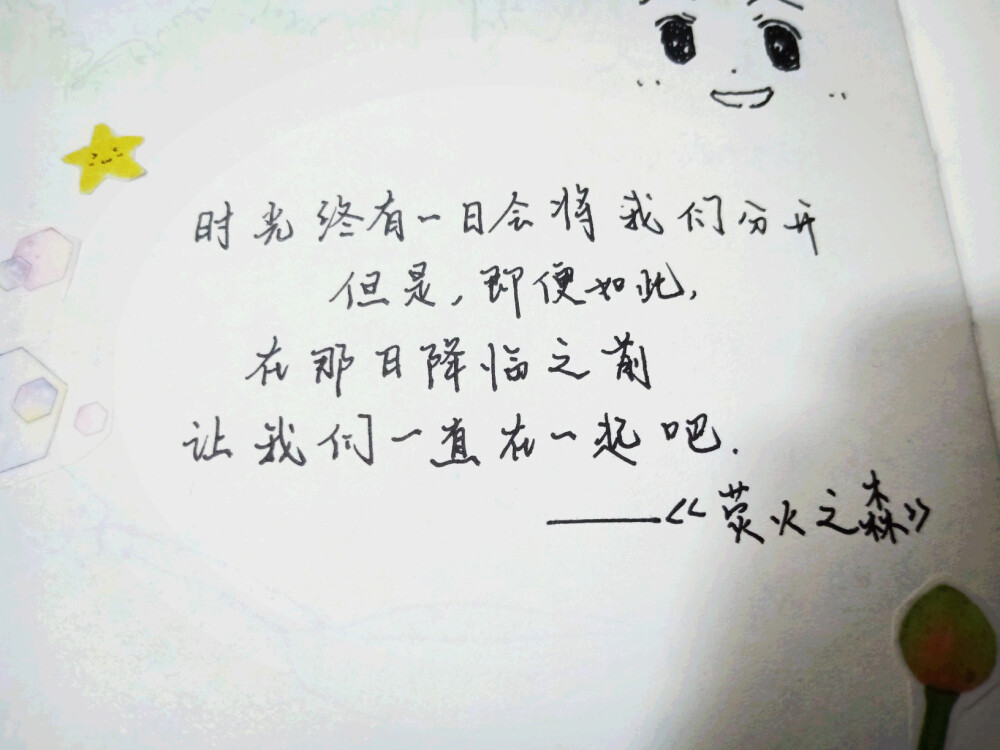 时光终有一日会将我们分开
但是,即便如此,
在那日降临之前
让我们一直在一起吧.
——《荧火之森》